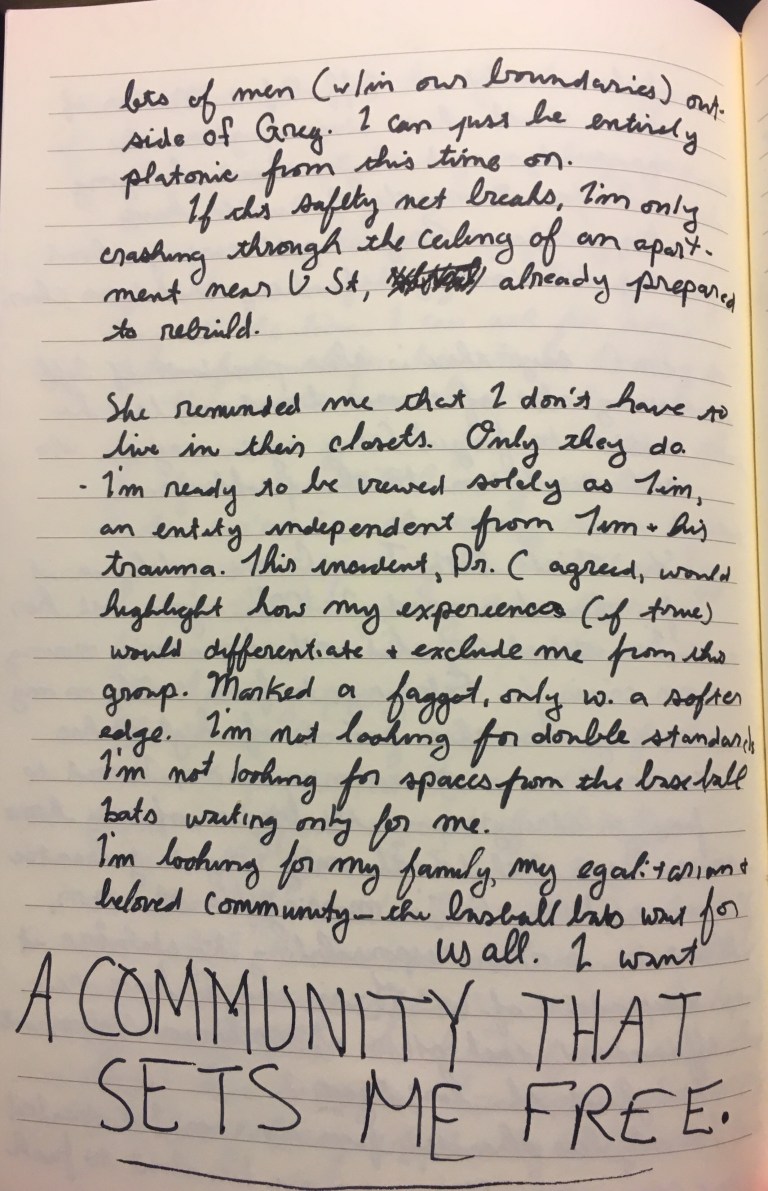 lots of men (w/in our boundaries) out-
side of Greg. I can just be entirely
platonic from this time on.
If this safety net breaks, I'm only
crashing through the ceiling of an apart-
ment near U St, already prepared
to rebuild.
She reminded me that I don't have to
live in their closets. Only they do.
- I'm ready to be viewed solely as Tim,
an entity independent from Tim + his
trauma. This incident, Dr. C agreed, would
highlight how my experiences (if true)
would differentiate + exclude me from this
group. Marked a faggot, only w. a softer
edge. I'm not looking for double standards
I'm not looking for spaces from the baseball
bats waiting only for me.
I'm looking for my family, my egalitarian +
beloved community - the baseball bats wait for
us all. I want
A COMMUNITY THAT
SETS ME FREE.